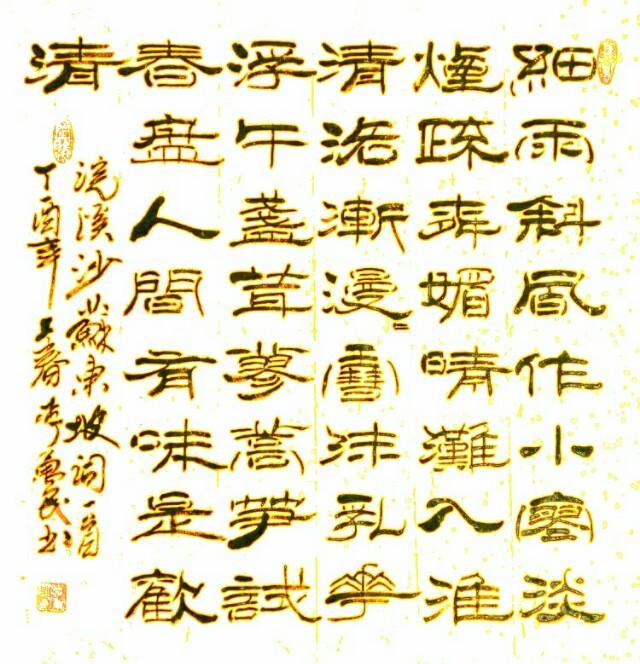 細雨斜風作小寒淡
煙疎柳媚晴灘入淮
清洛漸漫〻雪沫乳華
浮午盞茸蓼蒿笋試
春盤人間有味是歡
清
浣溪沙蘇東坡詞一首
丁酉年春李魯民书